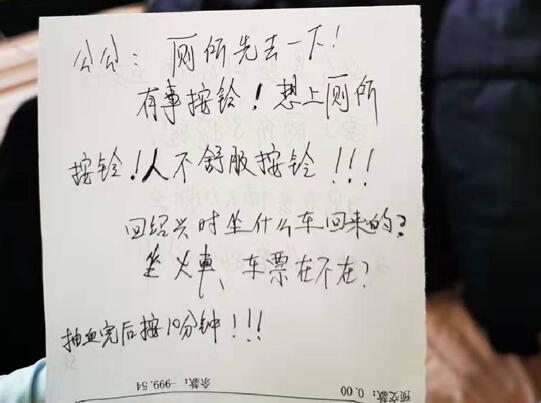 公公：厕所先去一下！
有事按铃！想上厕所
按铃！人不舒服按铃！！！
回绍兴时坐什么车回来的？
坐火車、车票在不在？
抽血完后按10分钟！！！
预交款：0.00
余款：-999.54